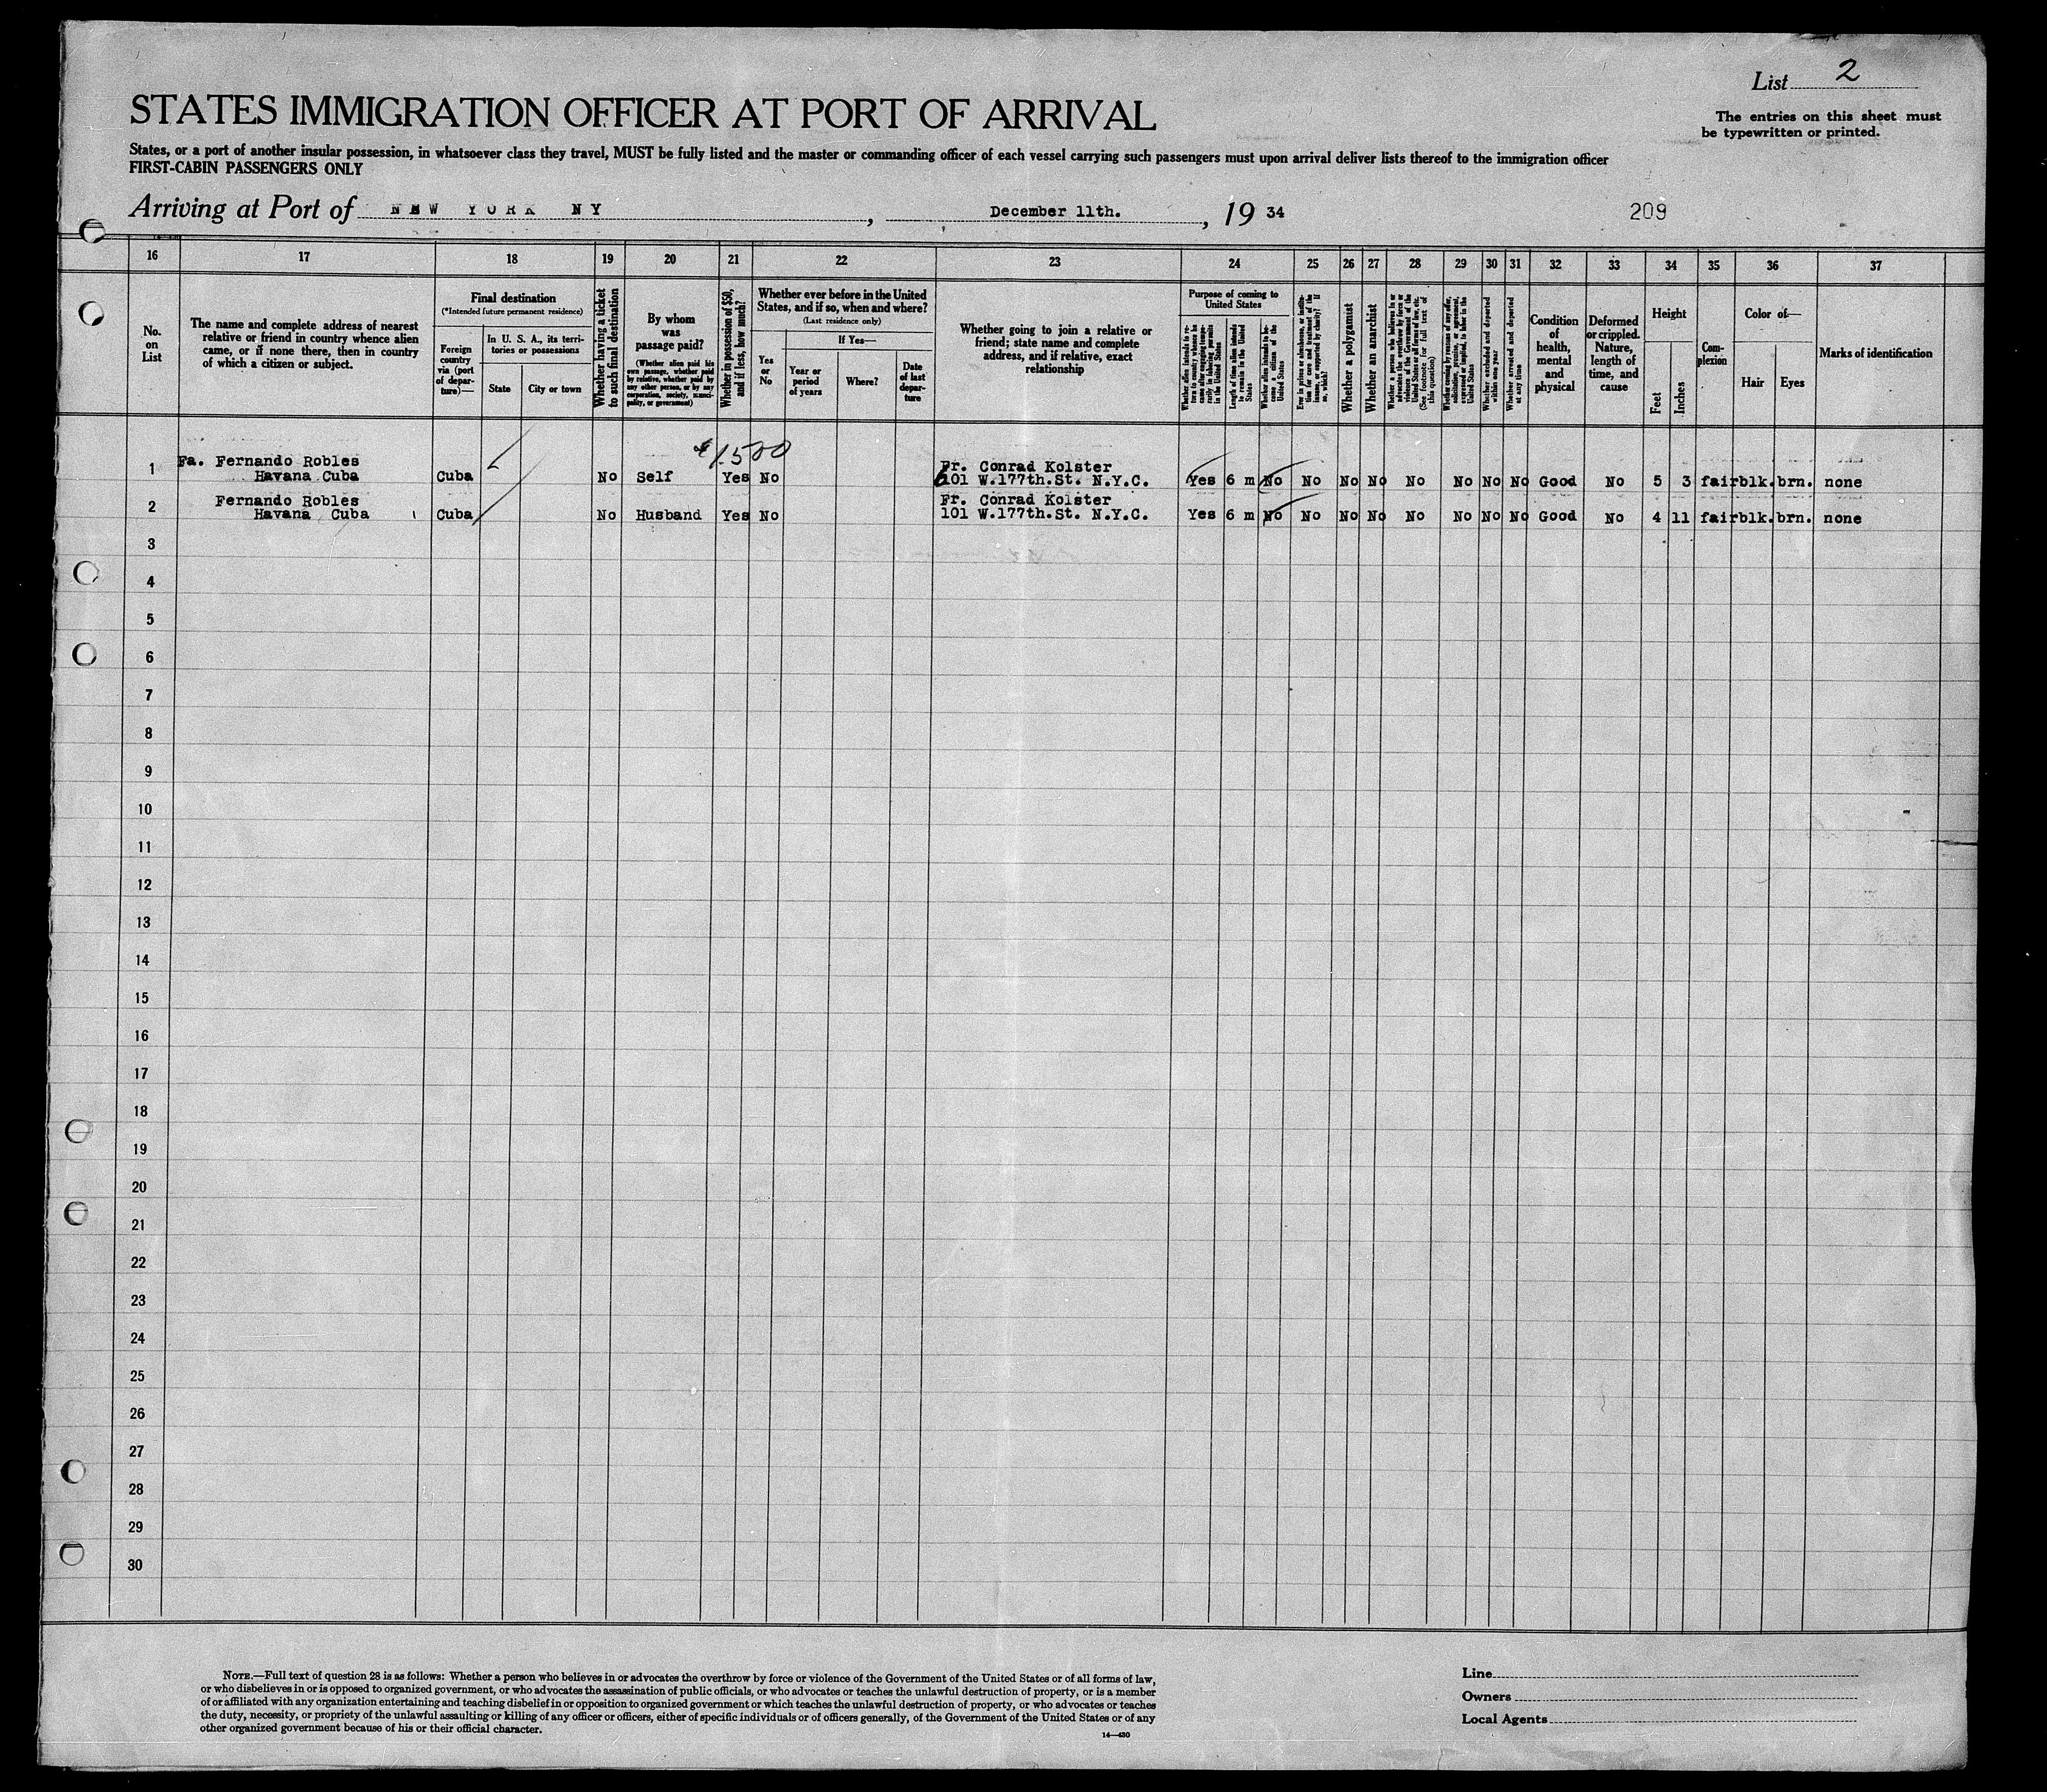 List 2
STATES IMMIGRATION OFFICER AT PORT OF ARRIVAL
The entries on this sheet must
be typewritten or printed.
States, or a port of another insular possession, in whatsoever class they travel, MUST be fully listed and the master or commanding officer of each vessel carrying such passengers must upon arrival deliver lists thereof to the immigration officer
FIRST-CABIN PASSENGERS ONLY
Arriving at Port of NEW YORK NY, December 11th., 19 34
209
16 17 18 19 20 21 22 23 24 25 26 27 28 29 30 31 32 33 34 35 36 37
No.
on
List
The name and complete address of nearest
relative or friend in country whence alien
came, or if none there, then in country
of which a citizen or subject.
Final destination
(*Intended future permanent residence)
Foreign
country
via (port
of depar-
ture)—
In U. S. A., its terri-
tories or possessions
State
City or town
Whether having a ticket
to such final destination
By whom
was
passage paid?
(Whether alien paid his
own passage, whether paid
by relative, whether paid by
any other person, or by any
corporation, society, munici-
pality, or government)
Whether in possession of $50,
and if less, how much?
Whether ever before in the United
States, and if so, when and where?
(Last residence only)
Yes
or
No
If Yes—
Year or
period
of years
Where?
Date
of last
depar-
ture
Whether going to join a relative or
friend; state name and complete
address, and if relative, exact
relationship
Purpose of coming to
United States
Whether alien intends to re-
turn to country whence he
came after engaging tempo-
rarily in laboring pursuits
in the United States
Length of time alien intends
to remain in the United
States
Whether alien intends to be-
come a citizen of the
United States
Ever in prison or almshouse, or institu-
tion for care and treatment of the
insane, or supported by charity? If
so, which?
Whether a polygamist
Whether an anarchist
Whether a person who believes in or
advocates the overthrow by force or
violence of the Government of the
United States or all forms of law, etc.
(See footnote for full text of
this question)
Whether coming by reason of any offer,
solicitation, promise, or agreement,
expressed or implied, to labor in the
United States
Whether excluded and deported
within one year
Whether arrested and deported
at any time
Condition
of
health,
mental
and
physical
Deformed
or crippled.
Nature,
length of
time, and
cause
Height
Feet
Inches
Com-
plexion
Color of—
Hair
Eyes
Marks of identification
$1500
Fa. Fernando Robles Fr. Conrad Kolster
1 Havana Cuba Cuba No Self Yes No 601 W.177th.St. N.Y.C. Yes 6 m No No No No No No No No Good No 5 3 fair blk. brn. none
Fernando Robles Fr. Conrad Kolster
2 Havana Cuba Cuba No Husband Yes No 101 W.177th.St. N.Y.C. Yes 6 m No No No No No No No No Good No 4 11 fair blk. brn. none
3
4
5
6
7
8
9
10
11
12
13
14
15
16
17
18
19
20
21
22
23
24
25
26
27
28
29
30
NOTE.—Full text of question 28 is as follows: Whether a person who believes in or advocates the overthrow by force or violence of the Government of the United States or of all forms of law,
or who disbelieves in or is opposed to organized government, or who advocates the assassination of public officials, or who advocates or teaches the unlawful destruction of property, or is a member
of or affiliated with any organization entertaining and teaching disbelief in or opposition to organized government or which teaches the unlawful destruction of property, or who advocates or teaches
the duty, necessity, or propriety of the unlawful assaulting or killing of any officer or officers, either of specific individuals or of officers generally, of the Government of the United States or of any
other organized government because of his or their official character.
14—430
Line
Owners
Local Agents